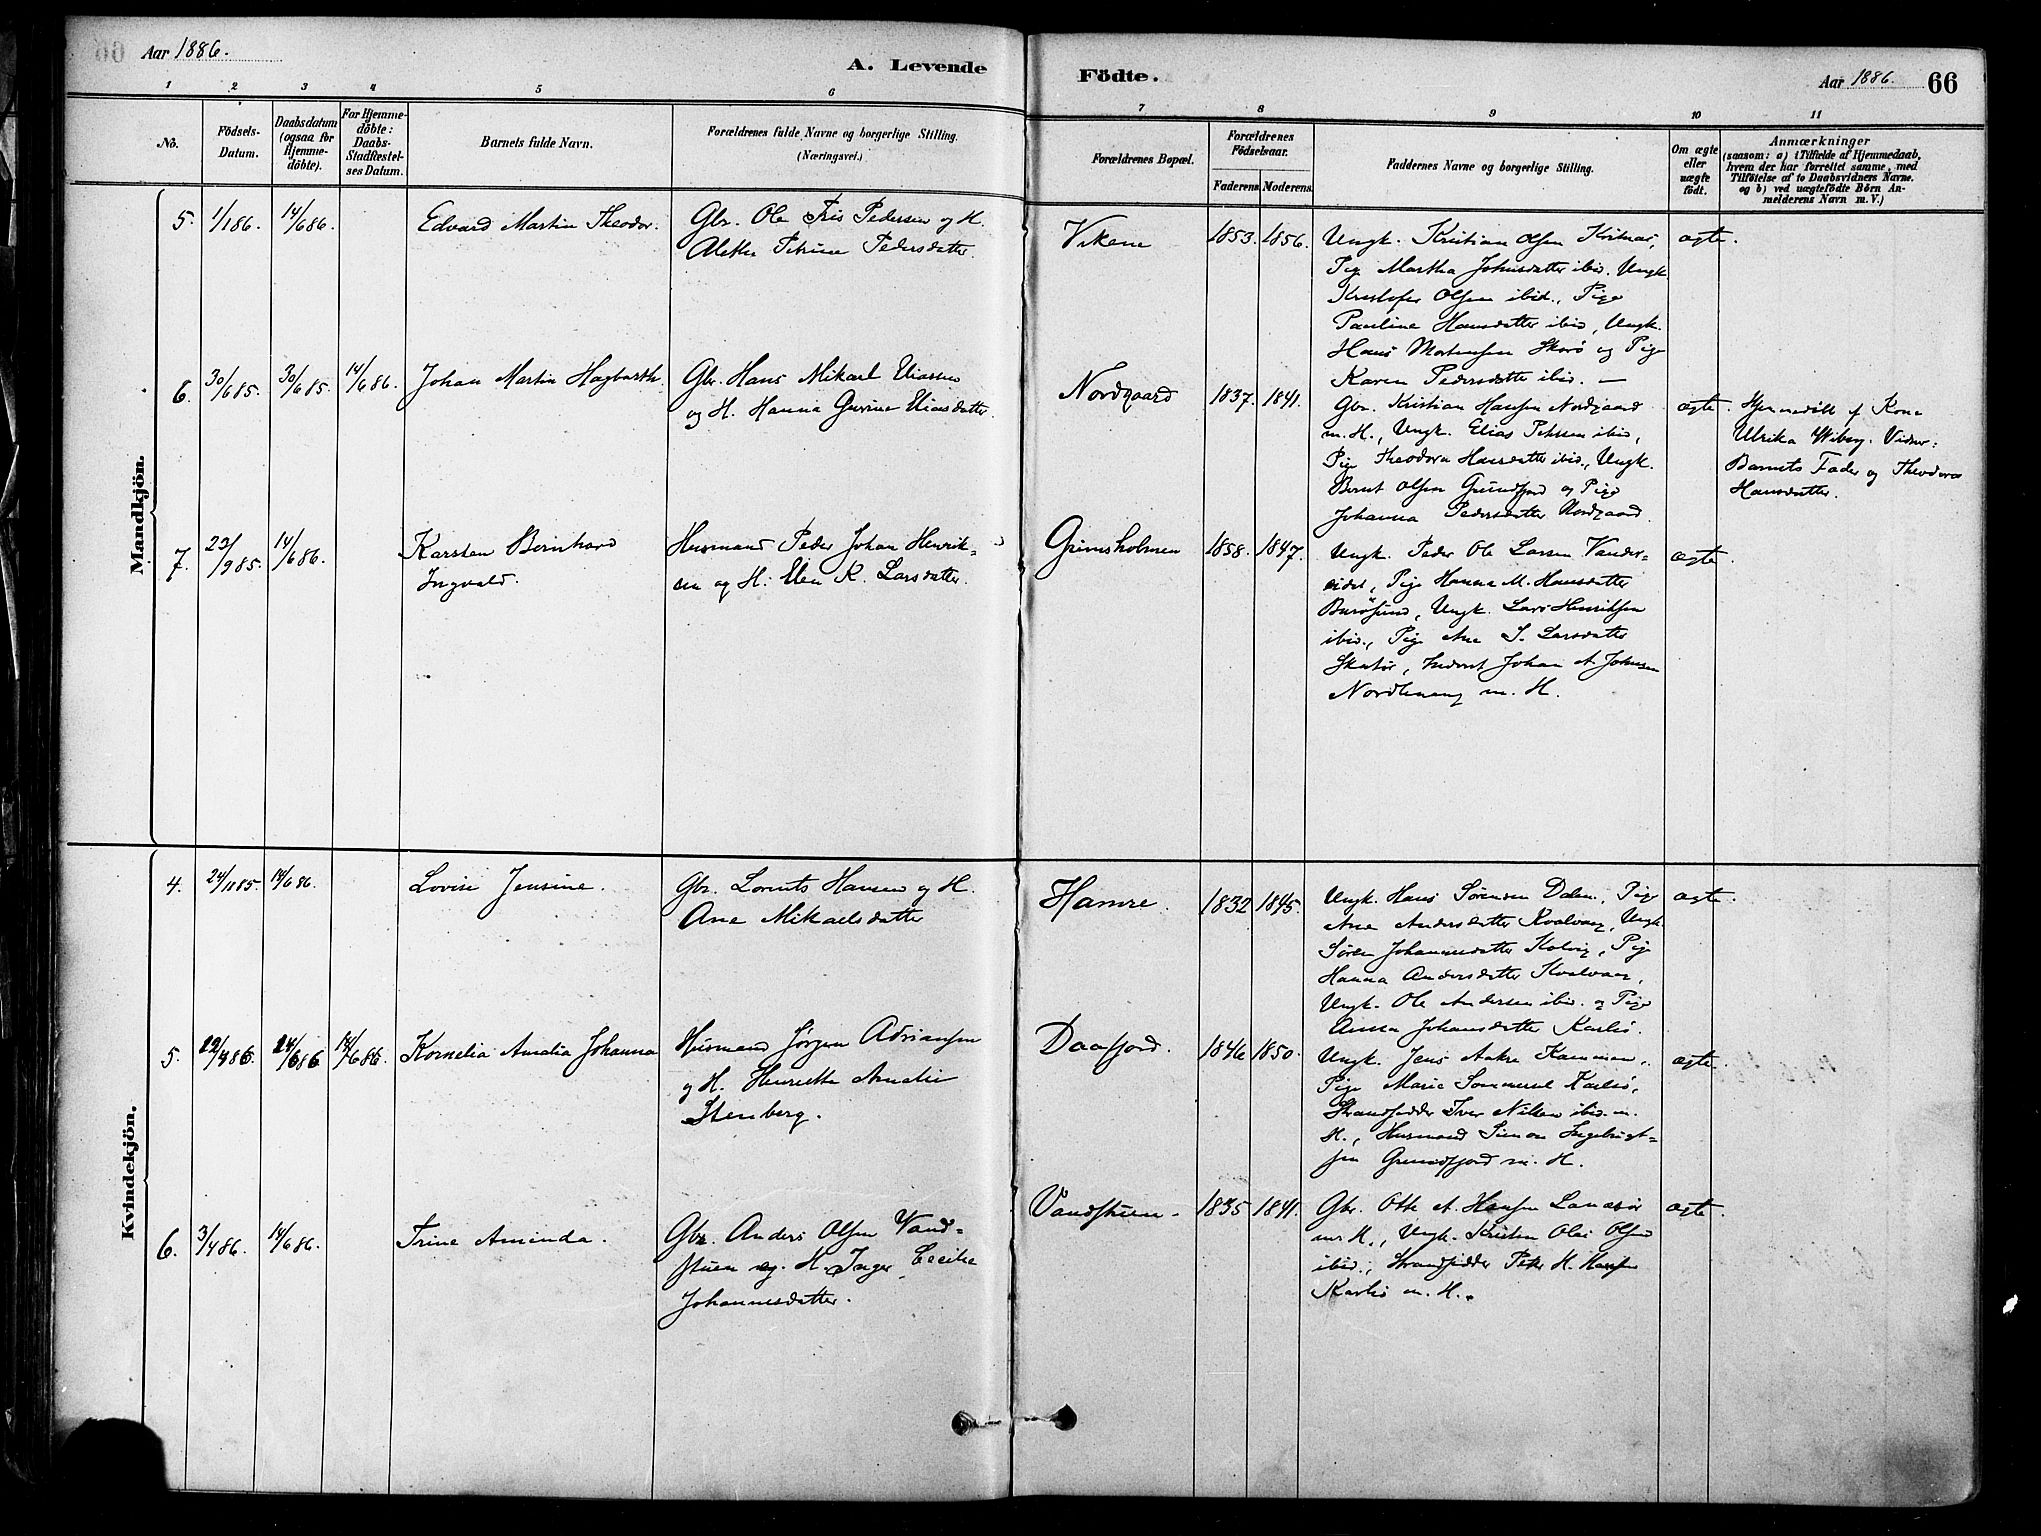 Aar 1886.
A. Levende
Födte.
Aar 1886.
66
1 2 3 4 5 6 7 8 9 10 11
No.
Födsels-
Datum.
Daabsdatum
(ogsaa for
Hjemme-
döbte).
For Hjemme-
döbte:
Daabs-
Stadfæstel-
ses Datum.
Barnets fulde Navn.
Forældrenes fulde Navne og borgerlige Stilling.
(Næringsvei.)
Forældrenes Bopæl.
Forældrenes
Födselsaar.
Faderens.
Moderens.
Faddernes Navne og borgerlige Stilling.
Om ægte
eller
uægte
födt.
Anmærkninger
(saasom: a) i Tilfælde af Hjemmedaab,
hvem der har forrettet samme, med
Tilföielse af to Daabsvidners Navne,
og b) ved uægtefödte Börn An-
melderens Navn m. V.)
Mandkjön.
5. 1/1 86. 14/6 86. Edvard Martin Theodor.
Gbr. Ole Pedersen og H.
Petrine Pedersdatter.
1853. 1856.
Ungk. Kristian Olsen
Pige Martha Johnsdatter ibid. Ungk.
Kristofer Olsen ibid., Pige
Pauline Hansdatter ibid, Ungk.
Hans Mortensen Skorö og Pige
Karen Pedersdatter ibid. —
ægte.
6. 30/6 85. 30/6 85. 14/6 86. Johan Martin Hagbarth
Gbr. Hans Mikael Eliassen
og H. Hanna Gurine Eliasdatter.
Nordgaard 1837. 1841.
Gbr. Kristian Hansen Nordgaard
m. H., Ungk. Elias ibid,
Pige Theodora Hansdatter ibid., Ungk.
Bernt Olsen Grundfjord og Pige
Johanna Pedersdatter Nordgaard.
ægte. Hjemmedöbt af Kone
Ulrika Wiberg. Vidner:
Barnets Fader og Theodora
Hansdatter.
7. 23/9 85. 14/6 86. Karsten Bernhard
Ingvald.
Husmand Peder Johan Henrik-
sen og H. Elen K. Larsdatter.
Grimsholmen 1858. 1847.
Ungk. Peder Ole Larsen Vander-
eidet, Pige Hanna M. Hansdatter
Burösund, Ungk. Lars Henriksen
ibid., Pige Ane S. Larsdatter
Johan A. Johnsen
m. H.
ægte.
Kvindekjön.
4. 24/11 85. 14/6 86. Lovise Jensine.
Gbr. Lorents Hansen og H.
Ane Mikaelsdatter
Hamre. 1832 1845.
Ungk. Hans Sörensen Dalen, Pige
Ane Andersdatter Kvalvaag, Ungk.
Sören Johannesdatter Kolvig, Pige
Hanna Andersdatter Kvalvaag,
Ungk. Ole Andersen ibid. og Pige
Anna Johansdatter Karlsö.
ægte.
5. 14/6 86. Kornelia Amalia Johanna
Husmand Jörgen Adriansen
og H. Henriette Amalie
Stenberg.
Daafjord. 1846 1850.
Ungk. Jens Aakre
Pige Marie Karlsö,
Strandsidder Iver Nilsen ibid. m.
H., Husmand Simon Ingebrigt-
sen Grundfjord m. H.
ægte.
6. 3/4 86. 14/6 86. Trine Aminda.
Gbr. Anders Olsen Vand-
stuen og H. Inger Cecilie
Johannesdatter.
Vandstuen. 1835 1841.
Gbr. Otto A. Hansen
m. H., Ungk. Kristen Olai Olsen
ibid., Strandsidder Peter H. Hansen
Karlsö m. H.
ægte.